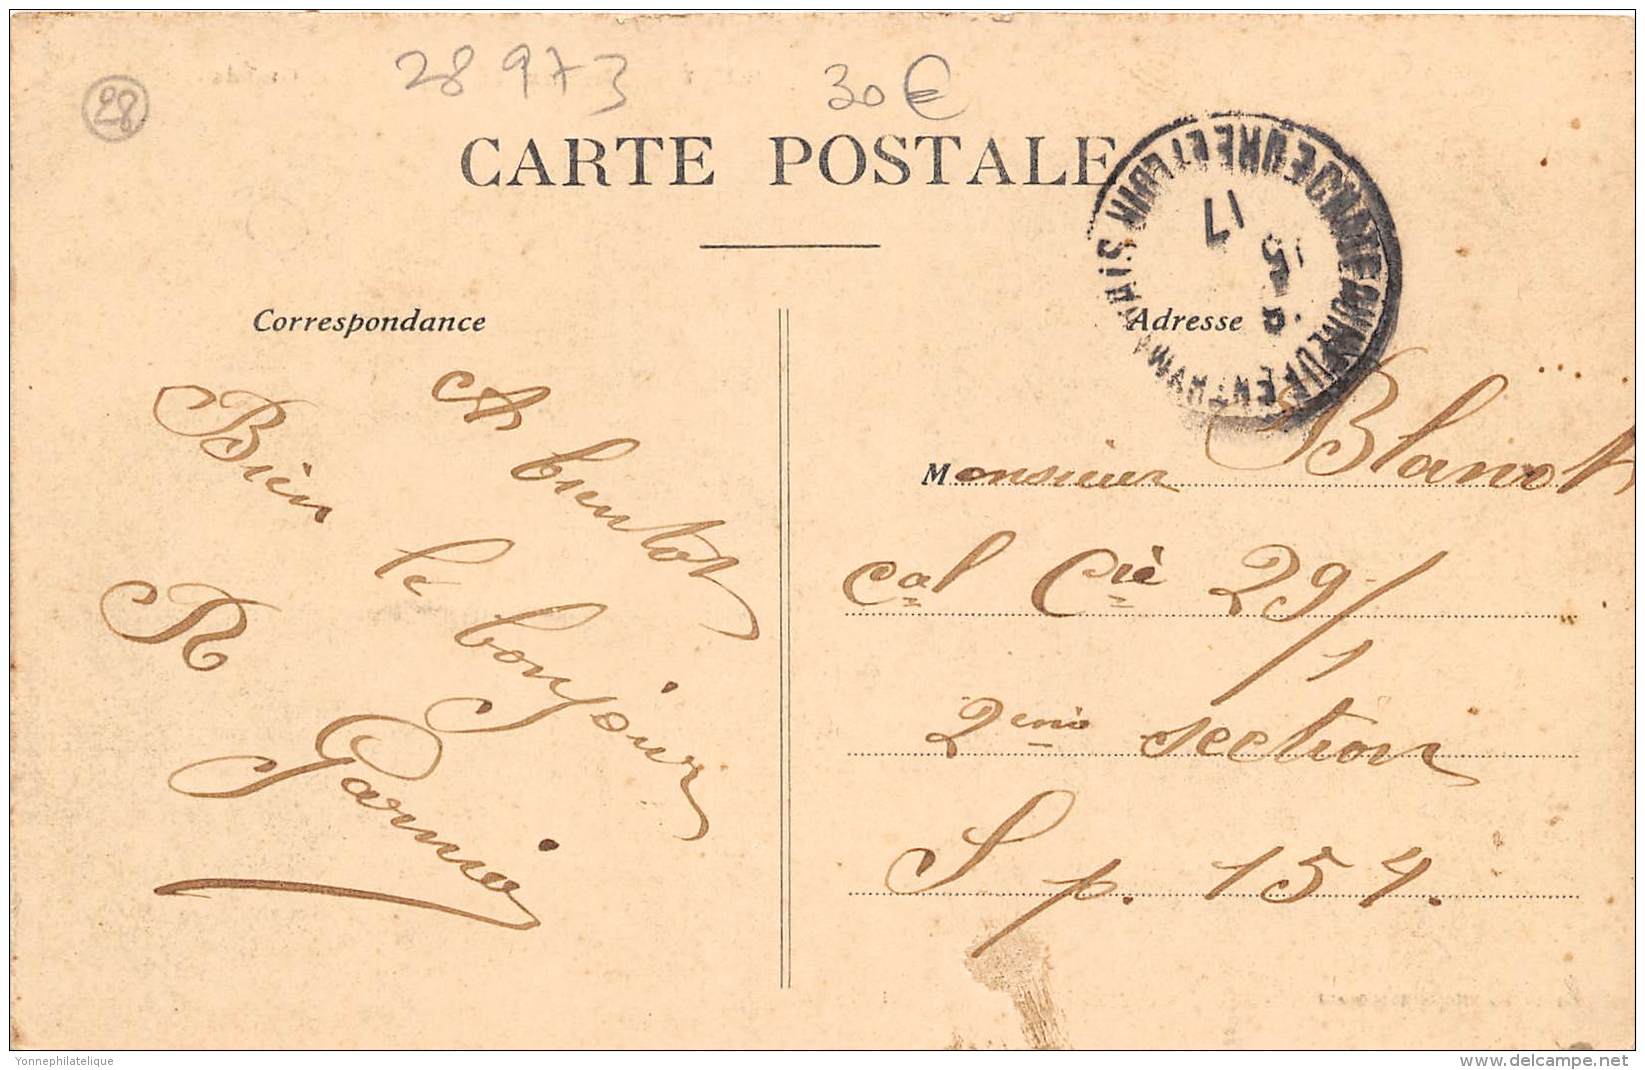 28 973
30 €
28
CARTE POSTALE
17
5
Correspondance
Adresse
A bientot
Bien le bonjour
R Garnier
Monsieur Blanot
cal Cie 29/1
2ème section
S p. 154.
Yonnephilatelique
delcampe.net